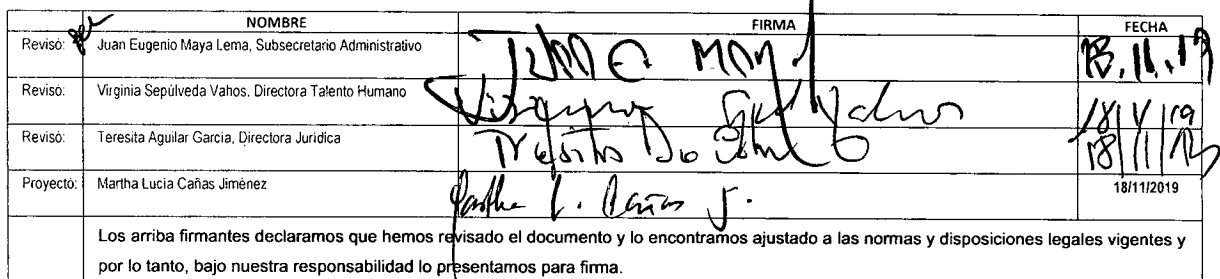 NOMBRE FIRMA FECHA
Revisó: Juan Eugenio Maya Lema, Subsecretario Administrativo 18.11.19
Revisó: Virginia Sepúlveda Vahos, Directora Talento Humano
Revisó: Teresita Aguilar García, Directora Jurídica
Proyectó: Martha Lucia Cañas Jiménez Martha L. Cañas J. 18/11/2019
Los arriba firmantes declaramos que hemos revisado el documento y lo encontramos ajustado a las normas y disposiciones legales vigentes y
por lo tanto, bajo nuestra responsabilidad lo presentamos para firma.